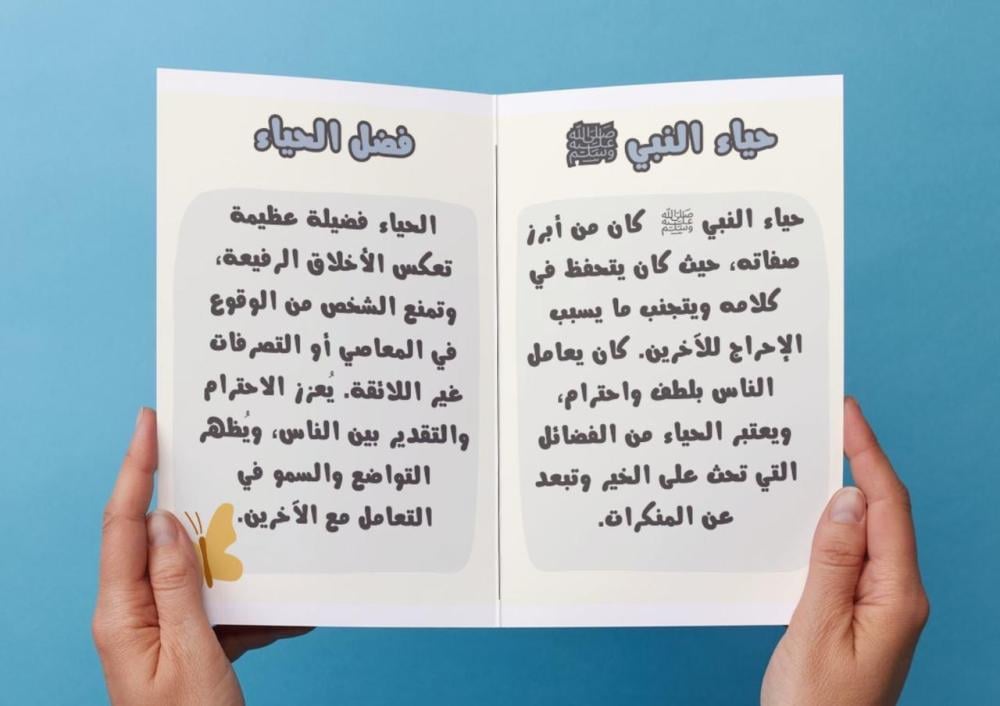 حياء النبي ﷺ
حياء النبي ﷺ كان من أبرز
صفاته، حيث كان يتحفظ في
كلامه ويتجنب ما يسبب
الإحراج للآخرين. كان يعامل
الناس بلطف واحترام،
ويعتبر الحياء من الفضائل
التي تحث على الخير وتبعد
عن المنكرات.
فضل الحياء
الحياء فضيلة عظيمة
تعكس الأخلاق الرفيعة،
وتمنع الشخص من الوقوع
في المعاصي أو التصرفات
غير اللائقة. يُعزز الاحترام
والتقدير بين الناس، ويُظهر
التواضع والسمو في
التعامل مع الآخرين.